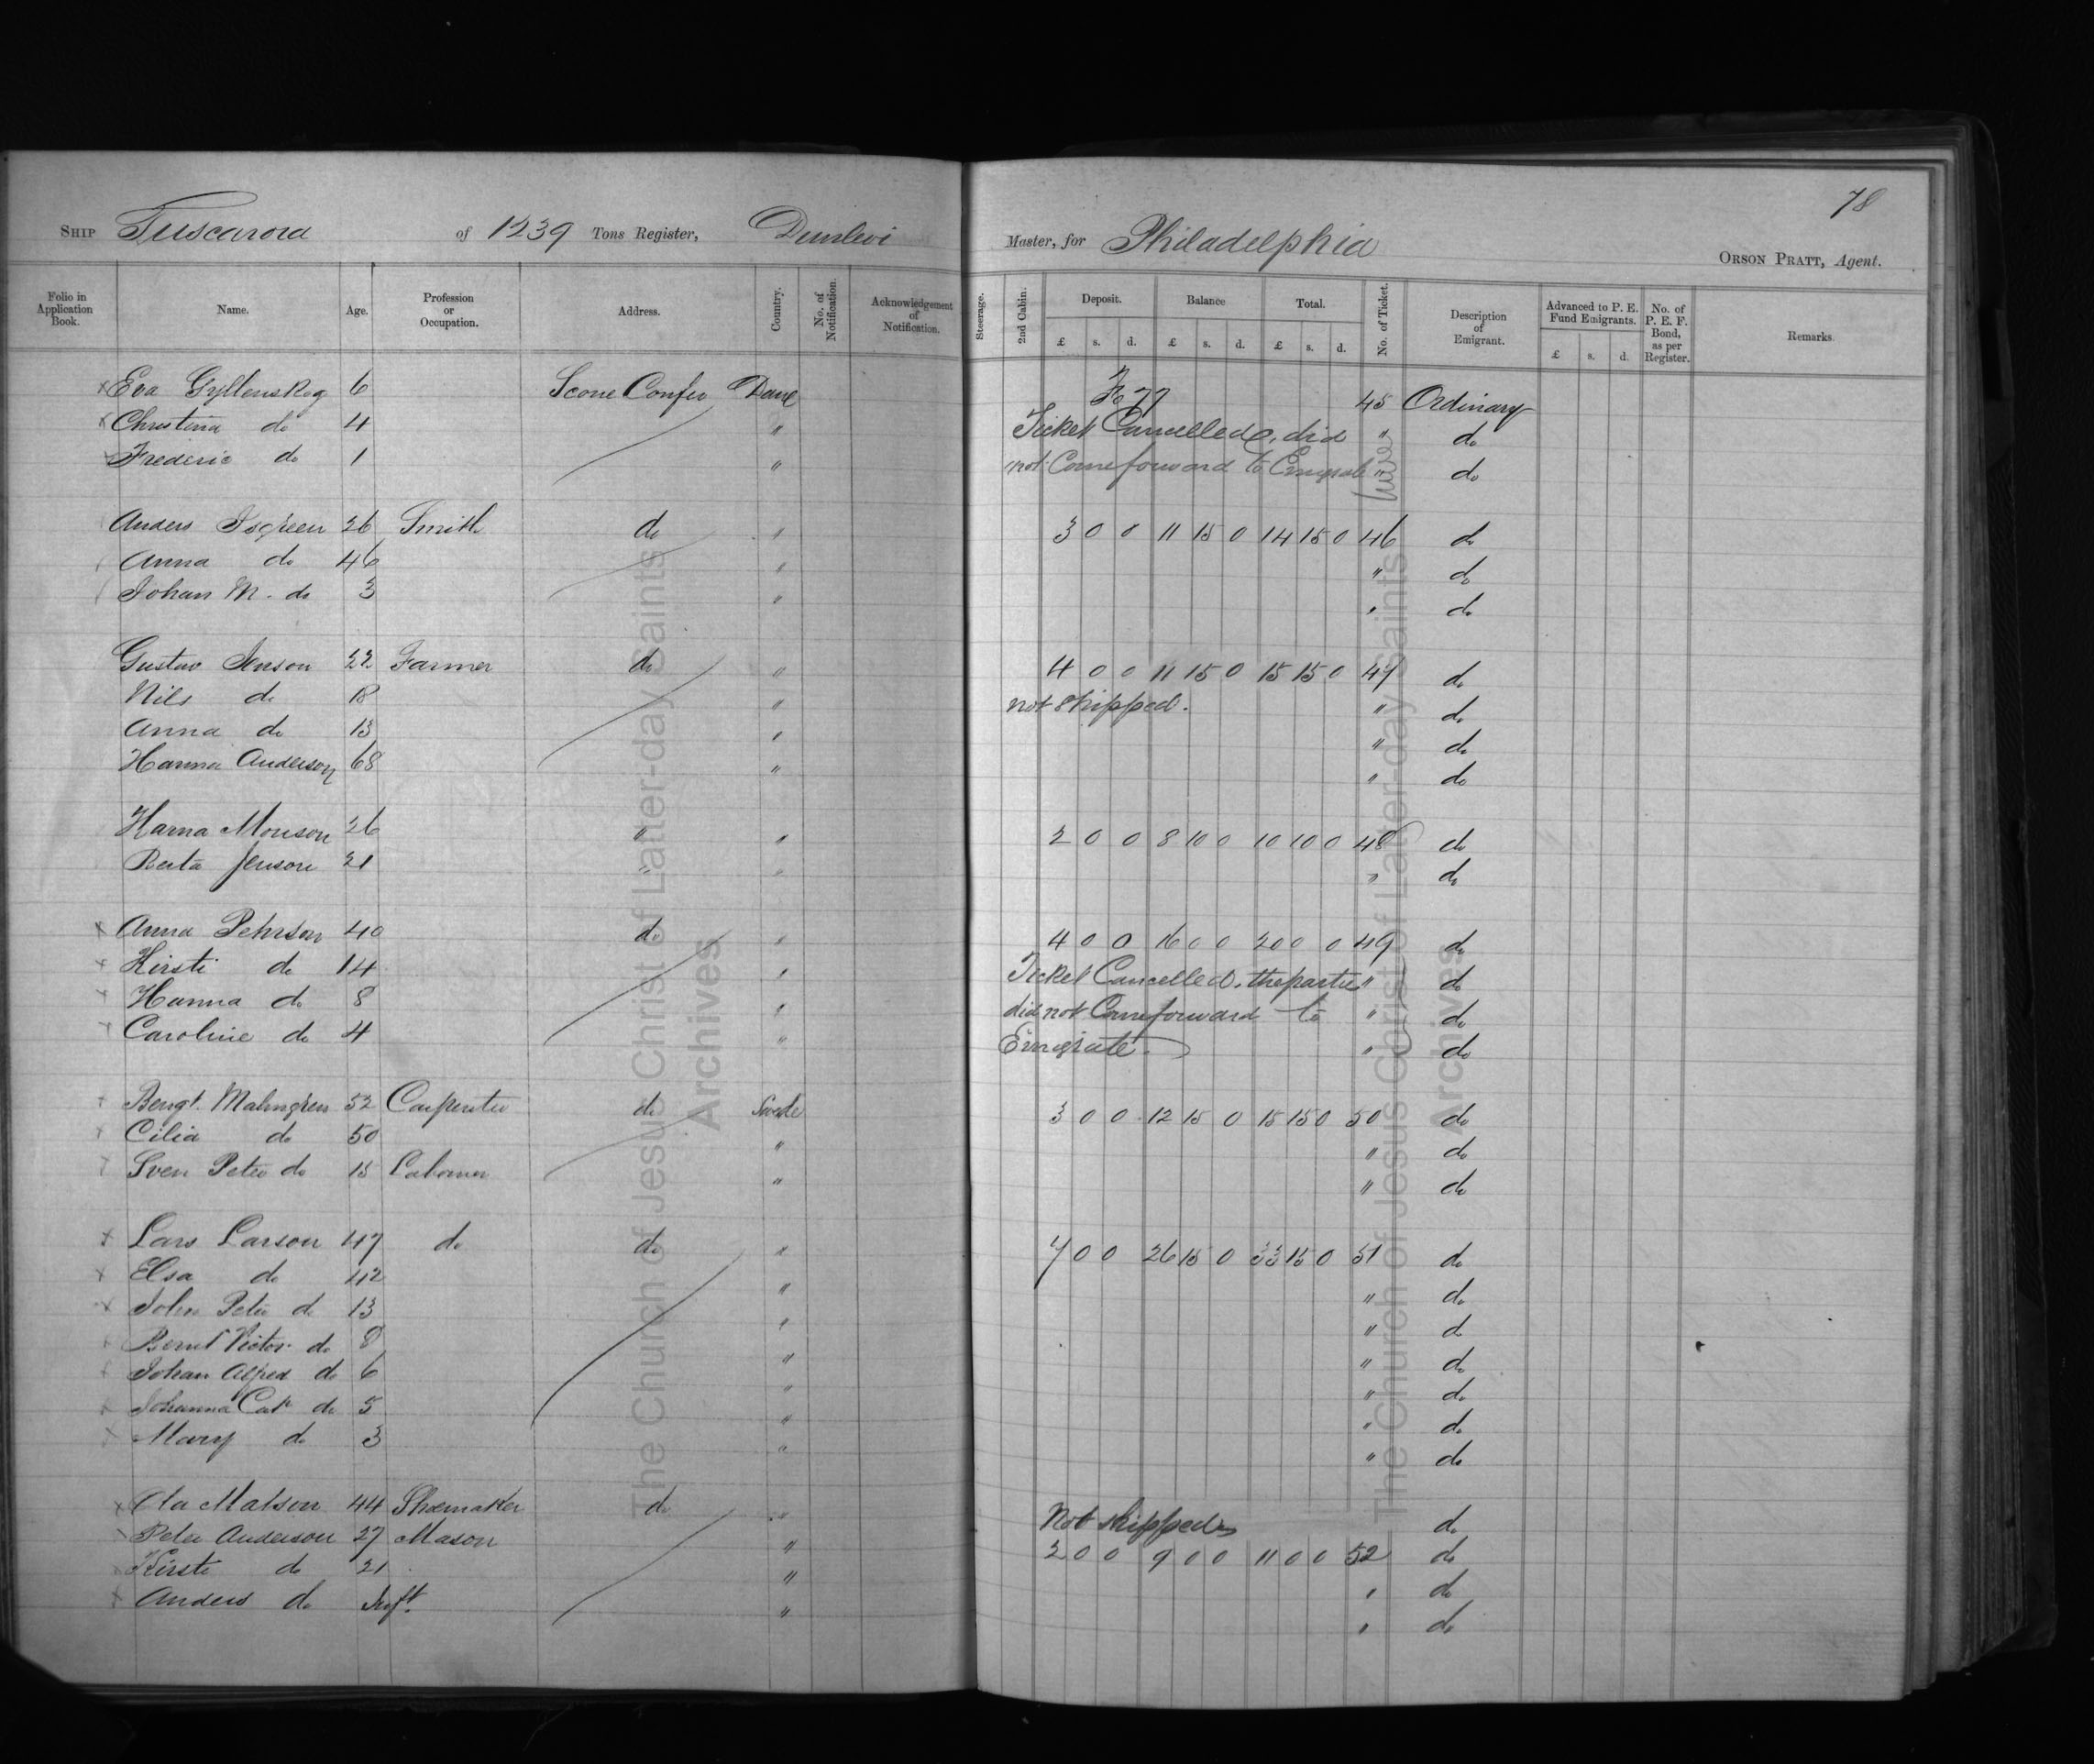 78
SHIP Tuscarora of 1239 Tons Register, Dunlevi Master, for Philadelphia ORSON PRATT, Agent.
Folio in Application Book. Name. Age. Profession or Occupation. Address. Country. No. of Notification. Acknowledgement of Notification. Steerage. 2nd Cabin. Deposit. Balance Total. No. of Ticket. Description of Emigrant. Advanced to P. E. Fund Emigrants. No. of P. E. F. Bond, as per Register. Remarks
£ s. d. £ s. d. £ s. d. £ s. d.
x Eva Gyllenskog 6 Scone Confer Dane Fo 77 45 Ordinary
x Christina do 4 " Ticket Cancelled, did " do
x Frederic do 1 " not Come forward to Emigrate " do
Anders Isgreen 26 Smith do " 3 0 0 11 15 0 14 15 0 46 do
Anna do 46 " " do
Johan M. do 3 " " do
Gustav Jenson 22 Farmer do " 4 0 0 11 15 0 15 15 0 47 do
Nils do 18 " not shipped. " do
Anna do 13 " " do
Hanna Anderson 68 " " do
Hanna Monson 26 " " 2 0 0 8 10 0 10 10 0 48 do
Berta Jenson 21 " " " do
x Anna Pehrson 40 do " 4 0 0 16 0 0 20 0 0 49 do
x Kirsti do 14 " Ticket Cancelled. the parties " do
x Hanna do 8 " did not Come forward to " do
x Caroline do 4 " Emigrate. " do
x Bengt. Malmgren 52 Carpenter do Swede 3 0 0 12 15 0 15 15 0 50 do
x Cilia do 50 " " do
x Sven Peter do 15 Labourer " " do
x Lars Larson 47 do do " 7 0 0 26 15 0 33 15 0 51 do
x Elsa do 42 " " do
x John Peter do 13 " " do
x Bernt Victor do 8 " " do
x Johan Alfred do 6 " " do
x Johanna Cat. do 5 " " do
x Mary do 3 " " do
x Ola Matson 44 Shoemaker do " Not shipped do
x Peter Anderson 27 Mason " 2 0 0 9 0 0 11 0 0 52 do
x Kirsti do 21 " " do
x Anders do Inft. " " do
The Church of Jesus Christ of Latter-day Saints
Archives
The Church of Jesus Christ of Latter-day Saints
Archives